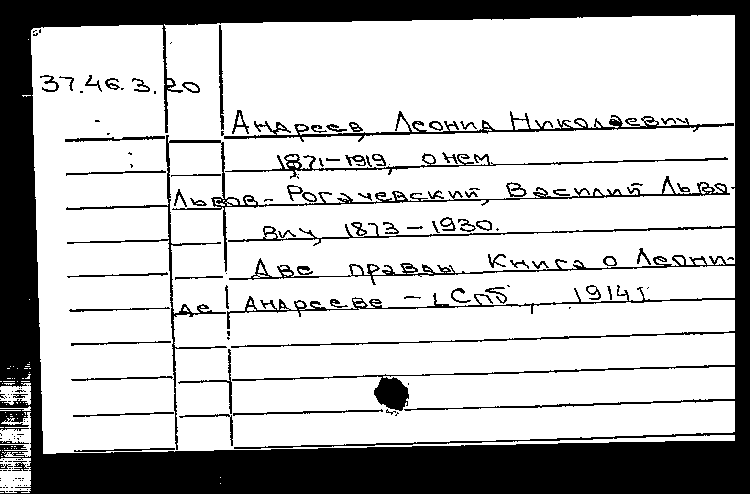 37.46.3.20
Андреев, Леонид Николаевич,
1871-1919, о нем.
Львов-Рогачевский, Василий Льво-
вич, 1873-1930.
Две правды. Книга о Леони-
де Андрееве - [СПб, 1914].